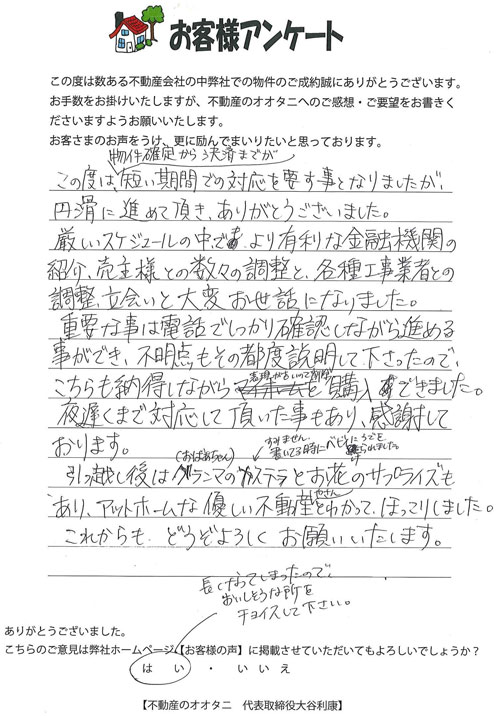 お客様アンケート
この度は数ある不動産会社の中弊社での物件のご成約誠にありがとうございます。
お手数をお掛けいたしますが、不動産のオオタニへのご感想・ご要望をお書きく
ださいますようお願いいたします。
お客さまのお声をうけ、更に励んでまいりたいと思っております。
物件確定から決済までが
この度は、短い期間での対応を要す事となりましたが、
円滑に進めて頂き、ありがとうございました。
厳しいスケジュールの中で、より有利な金融機関の
紹介、売主様との数々の調整と、各種工事業者との
調整、立会いと大変お世話になりました。
重要な事は電話でしっかり確認しながら進める
事ができ、不明点もその都度説明して下さったので、
こちらも納得しながら 購入できました。
夜遅くまで対応して頂いた事もあり、感謝して
おります。
(おばあちゃん)
すみません。
書いてる時にベビーにうでを
けられました。
引っ越し後はグランマのカステラとお花のサプライズも
あり、アットホームな優しい不動産やさんとわかって、ほっこりしました。
これからも、どうぞよろしくお願いいたします。
長くなってしまったので、
おいしそうな所を
チョイスして下さい。
ありがとうございました。
こちらのご意見は弊社ホームページ【お客様の声】に掲載させていただいてもよろしいでしょうか?
はい・いいえ
【不動産のオオタニ 代表取締役大谷利康】